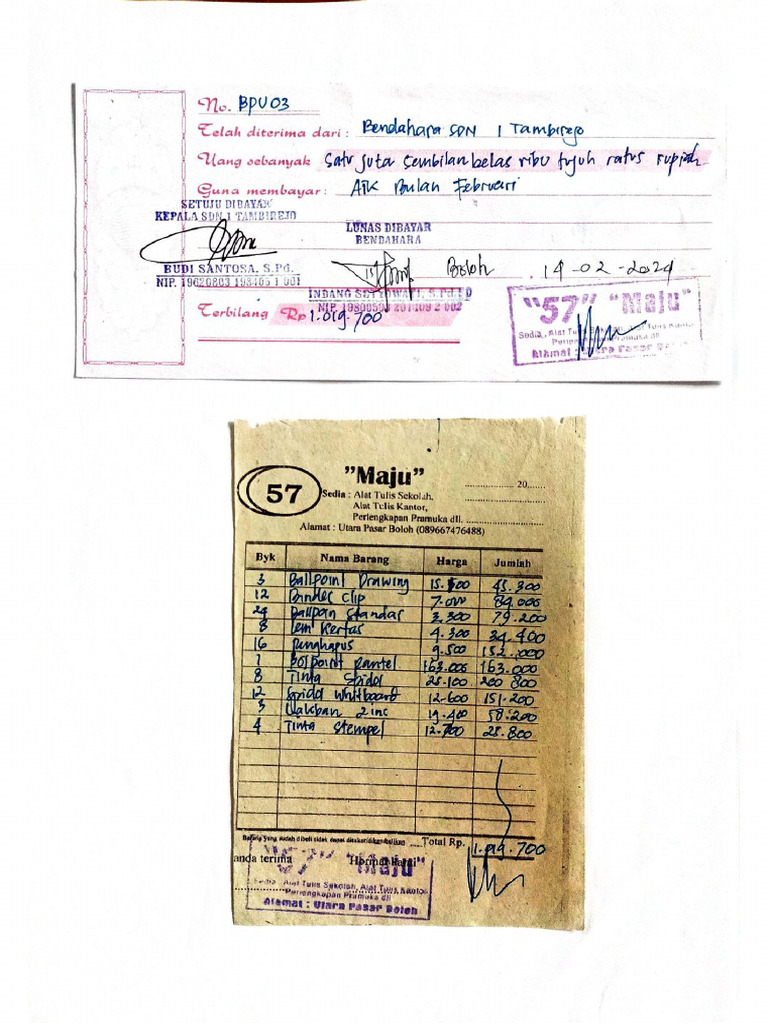 No. BPU03
Telah diterima dari : Bendahara SDN 1 Tambirejo
Uang sebanyak Satu juta Sembilan belas ribu tujuh ratus rupiah
Guna membayar : ATK Bulan Februari
SETUJU DIBAYAR
KEPALA SDN 1 TAMBIREJO
LUNAS DIBAYAR
BENDAHARA
Boloh, 14-02-2024
BUDI SANTOSA, S.Pd.
NIP. 19620803 198405 1 001
INDANG SETYOWATI, S.Pd.SD
Terbilang Rp 1.019.700
"57" "Maju"
Sedia : Alat Tulis Sekolah, Alat Tulis Kantor
Perlengkapan Pramuka dll
Alamat : Utara Pasar Boloh
57
"Maju"
Sedia : Alat Tulis Sekolah,
Alat Tulis Kantor,
Perlengkapan Pramuka dll.
Alamat : Utara Pasar Boloh (089667476488)
20
Byk Nama Barang Harga Jumlah
3 Ballpoint Drawing 15.100 45.300
12 Binder Clip 7.000 84.000
24 Ballpoin Standar 3.300 79.200
8 Lem Kertas 4.300 34.400
16 Penghapus 9.500 152.000
1 Bolpoint Pantel 163.000 163.000
8 Tinta Spidol 25.100 200 800
12 Spidol Whiteboard 12.600 151.200
3 Lakban 2 inc 19.400 58.200
4 Tinta Stempel 12.700 28.800
Barang yang sudah dibeli tidak dapat ditukar/dikembalikan
Total Rp. 1.019.700
anda terima Hormat kami
"57" "Maju"
Sedia : Alat Tulis Sekolah, Alat Tulis Kantor
Perlengkapan Pramuka dll
Alamat : Utara Pasar Boloh